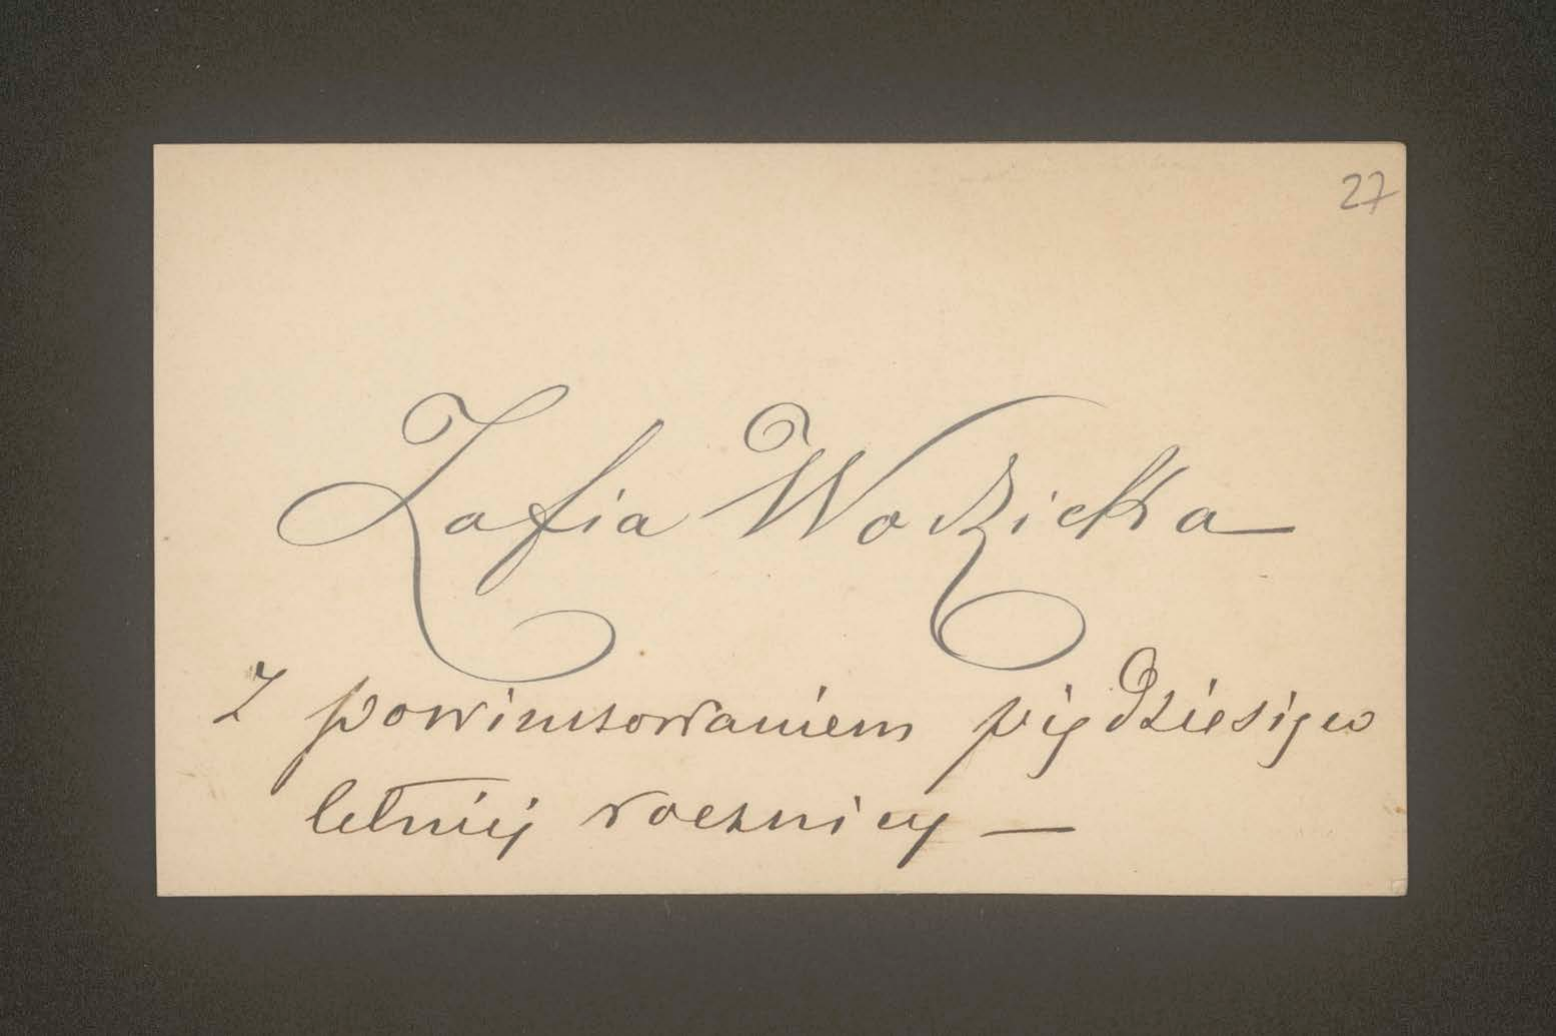 27
Zofia Wodzicka
z powinszowaniem pięćdziesięcio
letniej rocznicy —